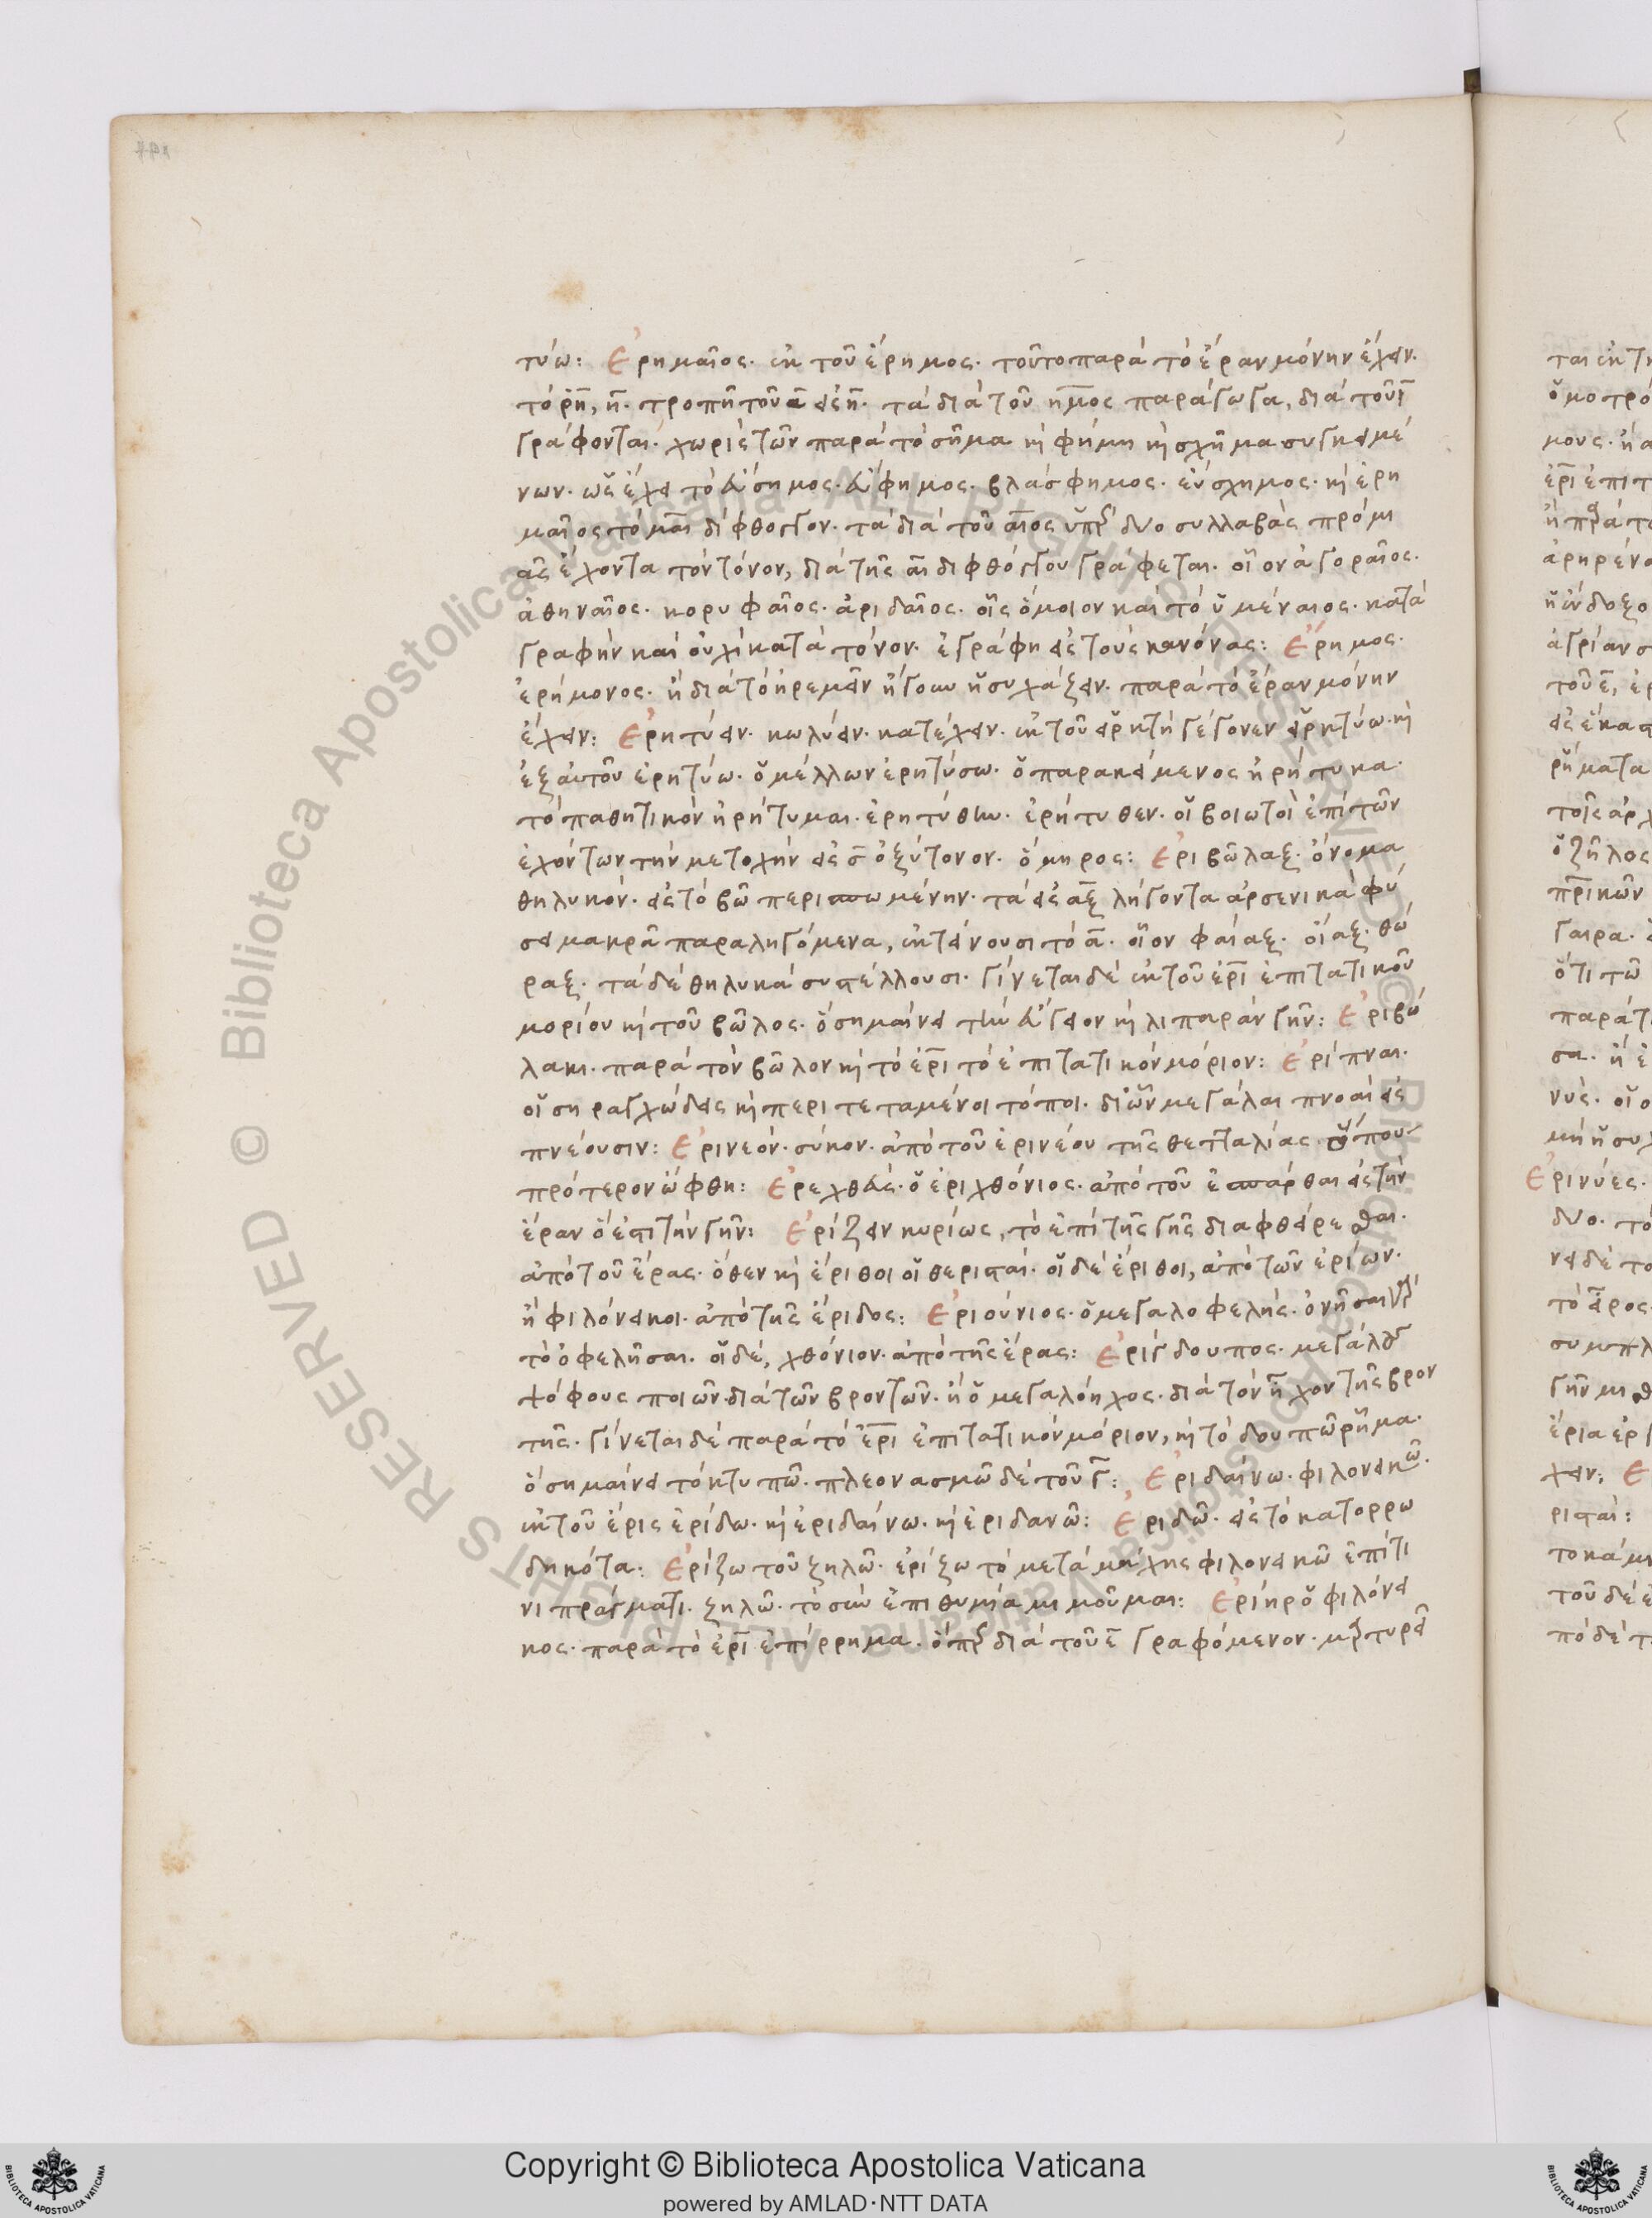 τύω: Ἐρημαῖος. ἐκ τοῦ ἔρημος. τοῦτο παρὰ τὸ ἔραν μόνην ἔχειν.
τὸ ρη, η. τροπῇ τοῦ α εἰς η. τὰ διὰ τοῦ ημος παράγωγα, διὰ τοῦ η
γράφονται. χωρὶς τῶν παρὰ τὸ σῆμα κὶ φήμη κὶ σχῆμα συγκειμέ
νων. ὡς ἔχει τὸ εὔσημος. εὔφημος. βλάσφημος. εὔσχημος. κὶ ἐρη
μαῖος τὸ μαι δίφθογγον. τὰ διὰ τοῦ αιος ὑπὲρ δύο συλλαβὰς πρὸ μι
ᾶς ἔχοντα τὸν τόνον, διὰ τῆς αι διφθόγγου γράφεται. οἷον ἀγοραῖος.
ἀθηναῖος. κορυφαῖος. ἀριδαῖος. οἷς ὅμοιον καὶ τὸ ὑμέναιος. κατὰ
γραφὴν καὶ οὐχὶ κατὰ τόνον. ἐγράφη εἰς τοὺς κανόνας: Ἔρημος.
ἐρήμονος. ἢ διὰ τὸ ἠρεμεῖν ἤγουν ἡσυχάζειν. παρὰ τὸ ἔραν μόνην
ἔχειν: Ἐρητύειν. κωλύειν. κατέχειν. ἐκ τοῦ εἴρητὴ γέγονεν εἰρητύω. κὶ
ἐξ αὐτοῦ ἐρητύω. ὁ μέλλων ἐρητύσω. ὁ παρακείμενος ἠρήτυκα.
τὸ παθητικὸν ἠρήτυμαι. ἐρητύθην. ἐρήτυθεν. οἱ βοιωτοὶ ἐπὶ τῶν
ἐχόντων τὴν μετοχὴν εἰς σ ὀξύτονον. ὅμηρος: Ἐριβῶλαξ. ὄνομα
θηλυκόν. εἰς τὸ βω περισπωμένην. τὰ εἰς αξ λήγοντα ἀρσενικὰ φύ
σει μακρᾶ παραληγόμενα, ἐκτείνουσι τὸ α. οἷον φαίαξ. οἴαξ. θώ
ραξ. τὰ δὲ θηλυκὰ συστέλλουσι. γίνεται δὲ ἐκ τοῦ ἐρι ἐπιτατικοῦ
μορίου κὶ τοῦ βῶλος. ὃ σημαίνει τὴν εὔγειον κὶ λιπαρὰν γῆν: Ἐριβώ
λακι. παρὰ τὸν βῶλον κὶ τὸ ἐρι τὸ ἐπιτατικὸν μόριον: Ἐρίπναι.
οἱ σηραγχώδεις κὶ περιτεταμένοι τόποι. δι' ὧν μεγάλαι πνοαὶ εἰς
πνέουσιν: Ἐρινεόν. σύκον. ἀπὸ τοῦ ἐρινέου τῆς θετταλίας. ὅπου
πρότερον ὤφθη: Ἐρεχθεύς. ὁ ἐριχθόνιος. ἀπὸ τοῦ ἐσπάρθαι εἰς τὴν
ἔραν ὅ ἐστι τὴν γῆν: Ἐρίζειν κυρίως, τὸ ἐπὶ τῆς γῆς διαφθείρεσθαι.
ἀπὸ τοῦ ἔρας. ὅθεν κὶ ἔριθοι οἱ θερισταί. οἱ δὲ ἔριθοι, ἀπὸ τῶν ἐρίων.
ἢ φιλόνεικοι. ἀπὸ τῆς ἔριδος: Ἐριούνιος. ὁ μεγαλοφελής. ὀνῆσαι γὰρ
τὸ ὀφελῆσαι. οἱ δέ, χθόνιον. ἀπὸ τῆς ἔρας: Ἐρίγδουπος. μεγάλους
ψόφους ποιῶν διὰ τῶν βροντῶν. ἢ ὁ μεγαλόηχος. διὰ τὸν ἦχον τῆς βρον
τῆς. γίνεται δὲ παρὰ τὸ ἐρι ἐπιτατικὸν μόριον, κὶ τὸ δουπῶ ρῆμα.
ὃ σημαίνει τὸ κτυπῶ. πλεονασμῶ δὲ τοῦ γ: Ἐριδαίνω. φιλονεικῶ.
ἐκ τοῦ ἔρις ἐρίδω. κὶ ἐριδαίνω. κὶ ἐριδανῶ: Ἐριδῶ. εἰς τὸ κατορρω
δηκότα: Ἐρίζω τοῦ ζηλῶ. ἐρίζω τὸ μετὰ μάχης φιλονεικῶ ἐπί τι
νι πράγματι. ζηλῶ. τὸ σὺν ἐπιθυμία μιμοῦμαι: Ἐρίηρ ὁ φιλόνει
κος. παρὰ τὸ ἐρι ἐπίρρημα. ὅπερ διὰ τοῦ ε γραφόμενον. μαρτυρεῖ
Copyright © Biblioteca Apostolica Vaticana
powered by AMLAD·NTT DATA